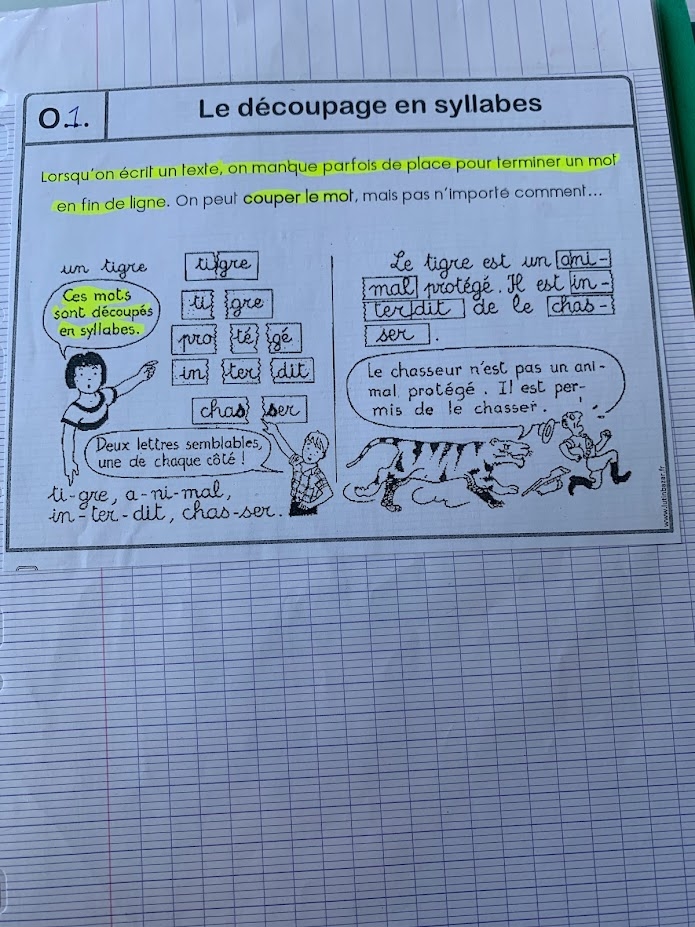 O1.
Le découpage en syllabes
Lorsqu'on écrit un texte, on manque parfois de place pour terminer un mot
en fin de ligne. On peut couper le mot, mais pas n'importe comment...
un tigre
tigre
Ces mots
sont découpés
en syllabes.
ti gre
pro té gé
in ter dit
chas ser
Deux lettres semblables,
une de chaque côté !
ti-gre, a-ni-mal,
in-ter-dit, chas-ser.
Le tigre est un ani-
mal protégé. Il est in-
terdit de le chas-
ser.
Le chasseur n'est pas un ani-
mal protégé. Il est per-
mis de le chasser.
www.lutinbazar.fr